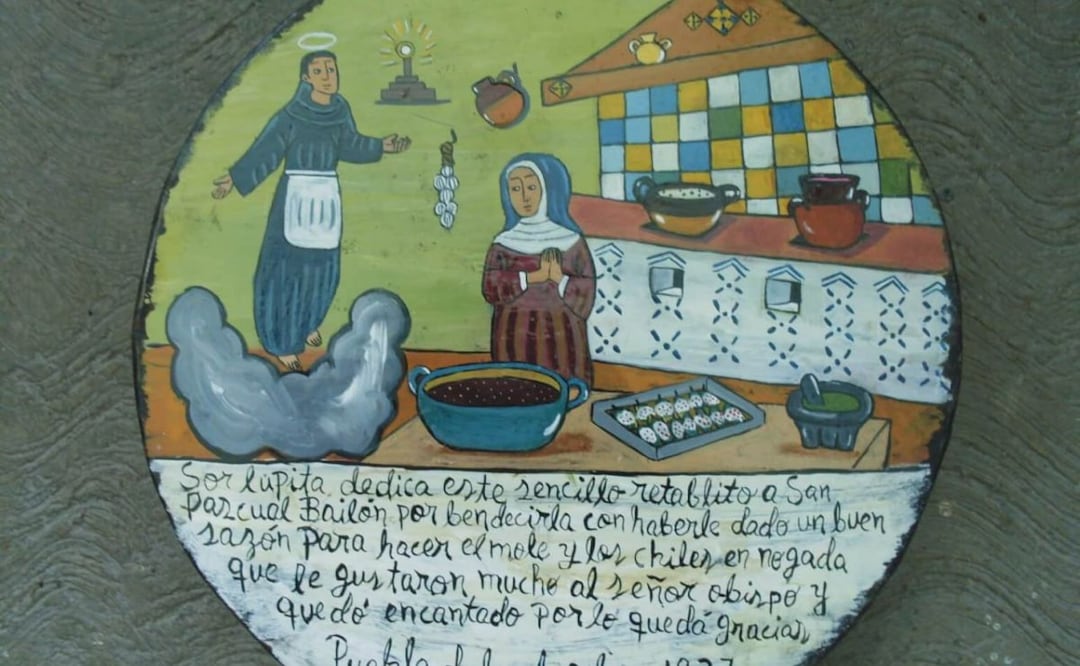 Sor lupita dedica este sencillo retablito a San
Pazcual Bailón por bendecirla con haberle dado un buen
sazón para hacer el mole y los chiles en nogada
que le gustaron mucho al señor obispo y
quedó encantado por lo quedá gracias
Puebla